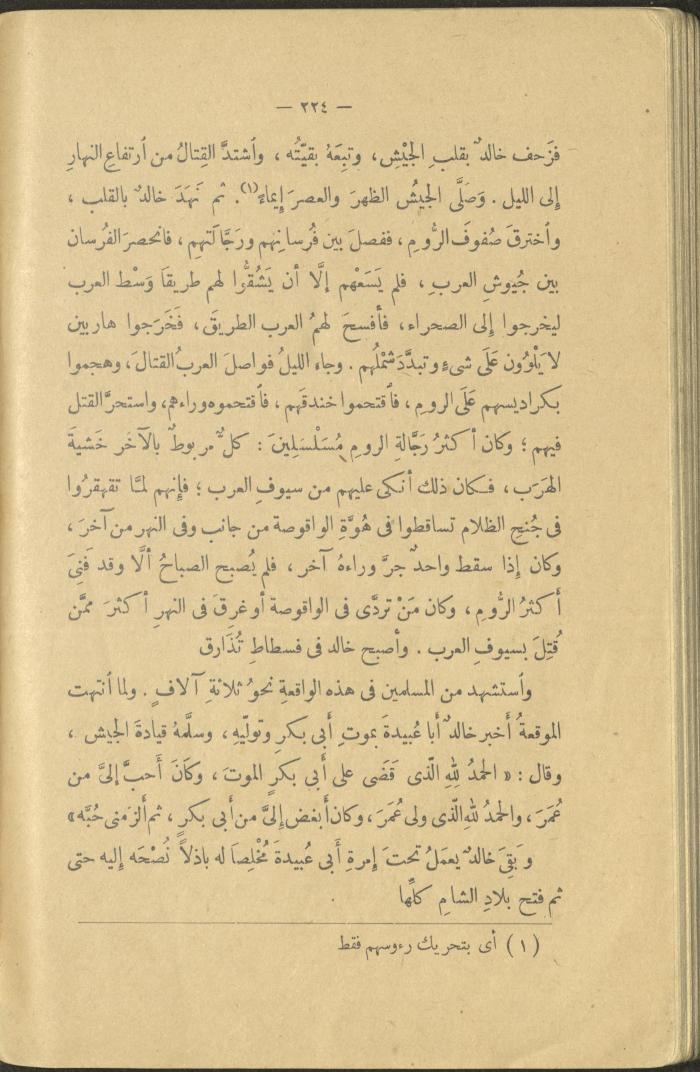 — ٢٢٤ —
فزَحف خالدٌ بقلبِ الجيْشِ، وتبِعَهُ بقيّتُه ، وأشتدَّ القِتالُ من أرتفاعِ النهارِ
إلى الليل . وَصَلَّى الجيشُ الظهرَ والعصرَ إيماءً(١). ثم نَهَدَ خالدٌ بالقلب ،
وأخترقَ صُفوفَ الرُّومِ ، ففصل بين فُرسانِهم ورَجَّالتهم ، فانحصرَ الفُرسان
بين جُيوشِ العربِ ، فلم يَسَعْهم إلَّا أن يَشُقُّوا لهم طريقًا وَسْط العرب
ليخرجوا إلى الصحراء ، فأفسحَ لهمُ العرب الطريقَ ، فَخَرَجوا هاربين
لا يَلْوُون عَلَى شىءٍ وتبدَّدَ شَمْلُهم . وجاء الليلُ فواصلَ العربُ القتالَ ، وهجموا
بكراديسهم عَلَى الرومِ ، فأقتحموا خندقَهم ، فأقتحموه وراءهم ، واستحرَّ القتل
فيهم ؛ وكان أكثرُ رَجَّالةِ الرومِ مُسَلْسَلِينَ : كلٌّ مربوطٌ بالآخَر خَشيةَ
الهرَب ، فـكان ذلك أنكى عليهم من سيوفِ العرب ؛ فإنهم لمَّا تقهقرُوا
فى جُنحِ الظلام تساقطوا فى هُوَّةِ الواقوصة من جانب وفى النهر من آخرَ ،
وكان إذا سقط واحدٌ جرَّ وراءهُ آخر ، فلم يُصبح الصباحُ ألَّا وقد فَنِىَ
أكثرُ الرُّومِ ، وكان مَنْ تردَّى فى الواقوصة أو غرِقَ فى النهرِ أكثرَ ممَّن
قُتِلَ بسيوفِ العرب . وأصبح خالد فى فسطاطِ تُذَارق
وأستشهد من المسلمين فى هذه الواقعةِ نحوُ ثلاثةِ آلافٍ . ولما أنتهت
الموقعةُ أخبر خالدٌ أبا عُبيدةَ بموتِ أبى بكرٍ وتولّيهِ ، وسلَّمهُ قيادةَ الجيش ،
وقال : « الحمدُ للهِ الّذى قَضَى على أبى بكرٍ الموتَ ، وكَانَ أَحبَّ إلىَّ من
عُمَرَ ، والحمدُ للهِ الّذى ولى عُمَرَ ، وكان أبغض إلىَّ من أبى بكرٍ ، ثم ألزمنى حُبَّه »
وبَقِىَ خالدٌ يعملُ تحتَ إمرةِ أبى عُبيدةَ مُخْلِصًا له باذلاً نُصْحَه إليه حتى
ثم فتح بلادِ الشامِ كلِّها
(١) أى بتحريك رءوسهم فقط